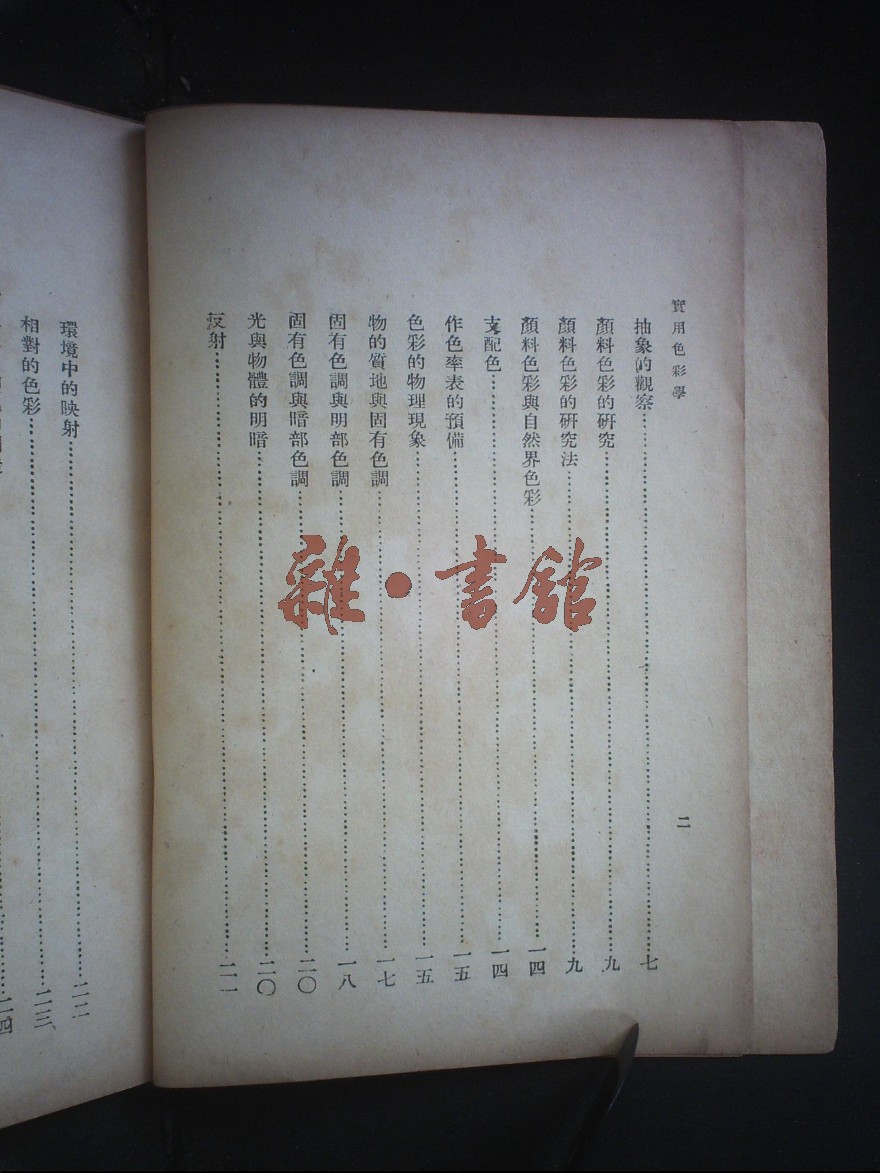 實用色彩學
二
抽象的觀察……七
顏料色彩的研究……九
顏料色彩的研究法……九
顏料色彩與自然界色彩……一四
支配色……一四
作色率表的預備……一五
色彩的物理現象……一五
物的質地與固有色調……一七
固有色調與明部色調……一八
固有色調與暗部色調……二〇
光與物體的明暗……二〇
反射……二一
環境中的映射……二二
相對的色彩……二三
二四
雜·書館